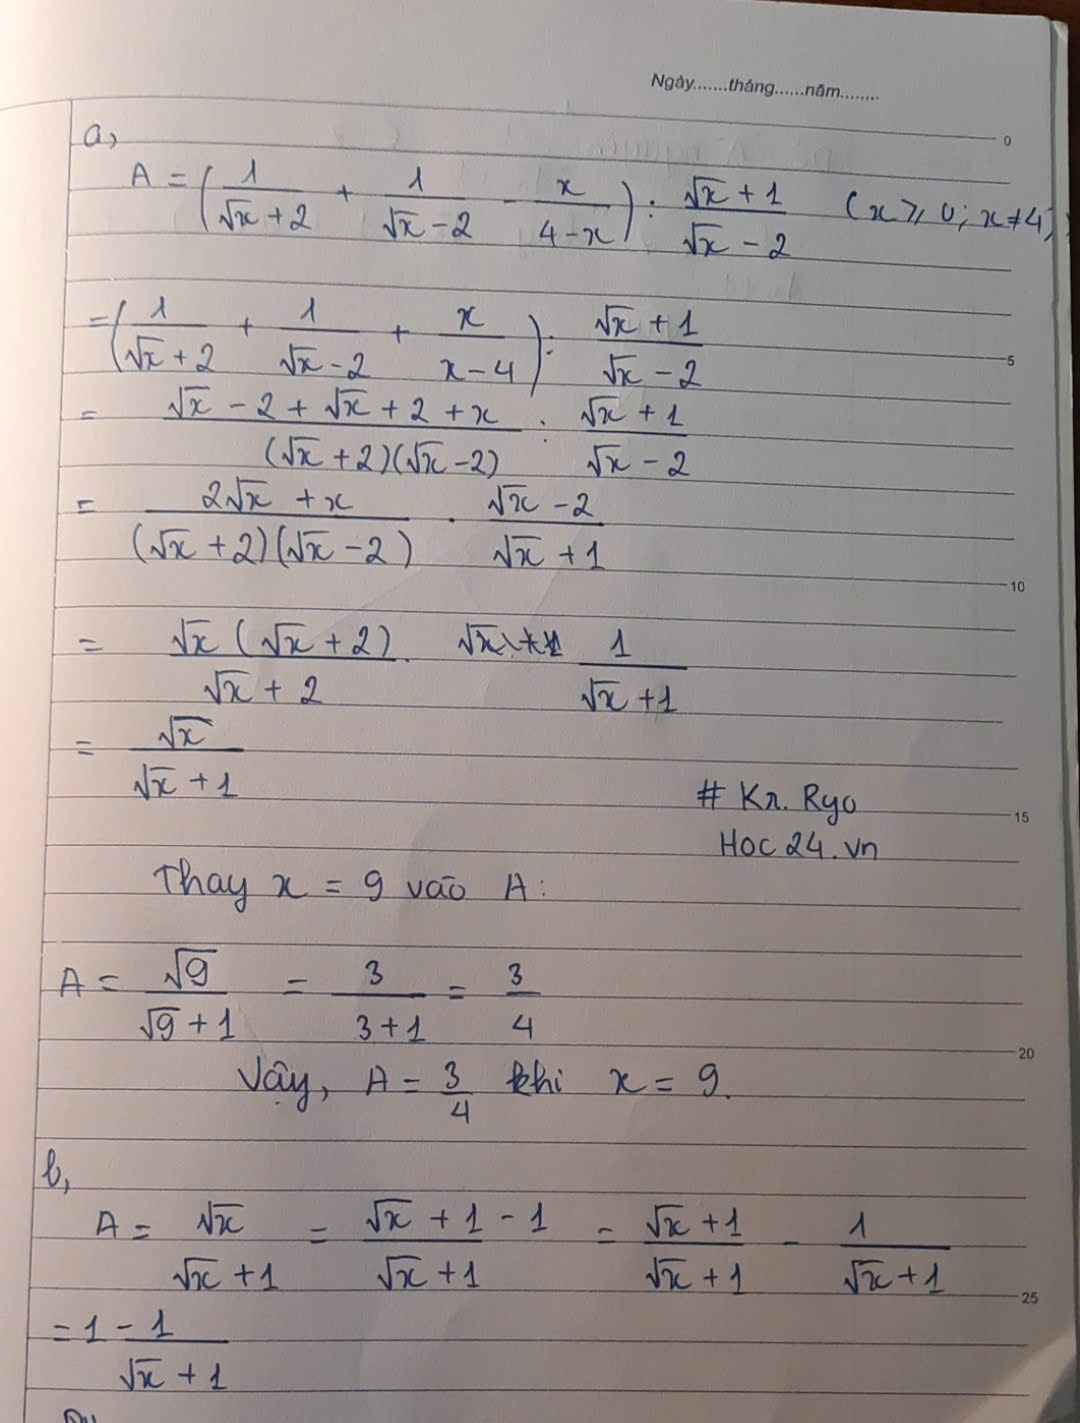 Ngày.......tháng......năm........
0
a,
A = (1/(√x + 2) + 1/(√x - 2) - x/(4 - x)) : (√x + 1)/(√x - 2) (x ⩾ 0; x ≠ 4)
= (1/(√x + 2) + 1/(√x - 2) + x/(x - 4)) : (√x + 1)/(√x - 2)
5
= (√x - 2 + √x + 2 + x)/((√x + 2)(√x - 2)) : (√x + 1)/(√x - 2)
= (2√x + x)/((√x + 2)(√x - 2)) . (√x - 2)/(√x + 1)
10
= (√x (√x + 2))/(√x + 2) . 1/(√x + 1)
= √x/(√x + 1)
# Kr. Ryo
15
Hoc 24.vn
Thay x = 9 vào A :
A = √9/(√9 + 1) = 3/(3 + 1) = 3/4
20
Vậy, A = 3/4 khi x = 9.
b,
A = √x/(√x + 1) = (√x + 1 - 1)/(√x + 1) = (√x + 1)/(√x + 1) - 1/(√x + 1)
25
= 1 - 1/(√x + 1)